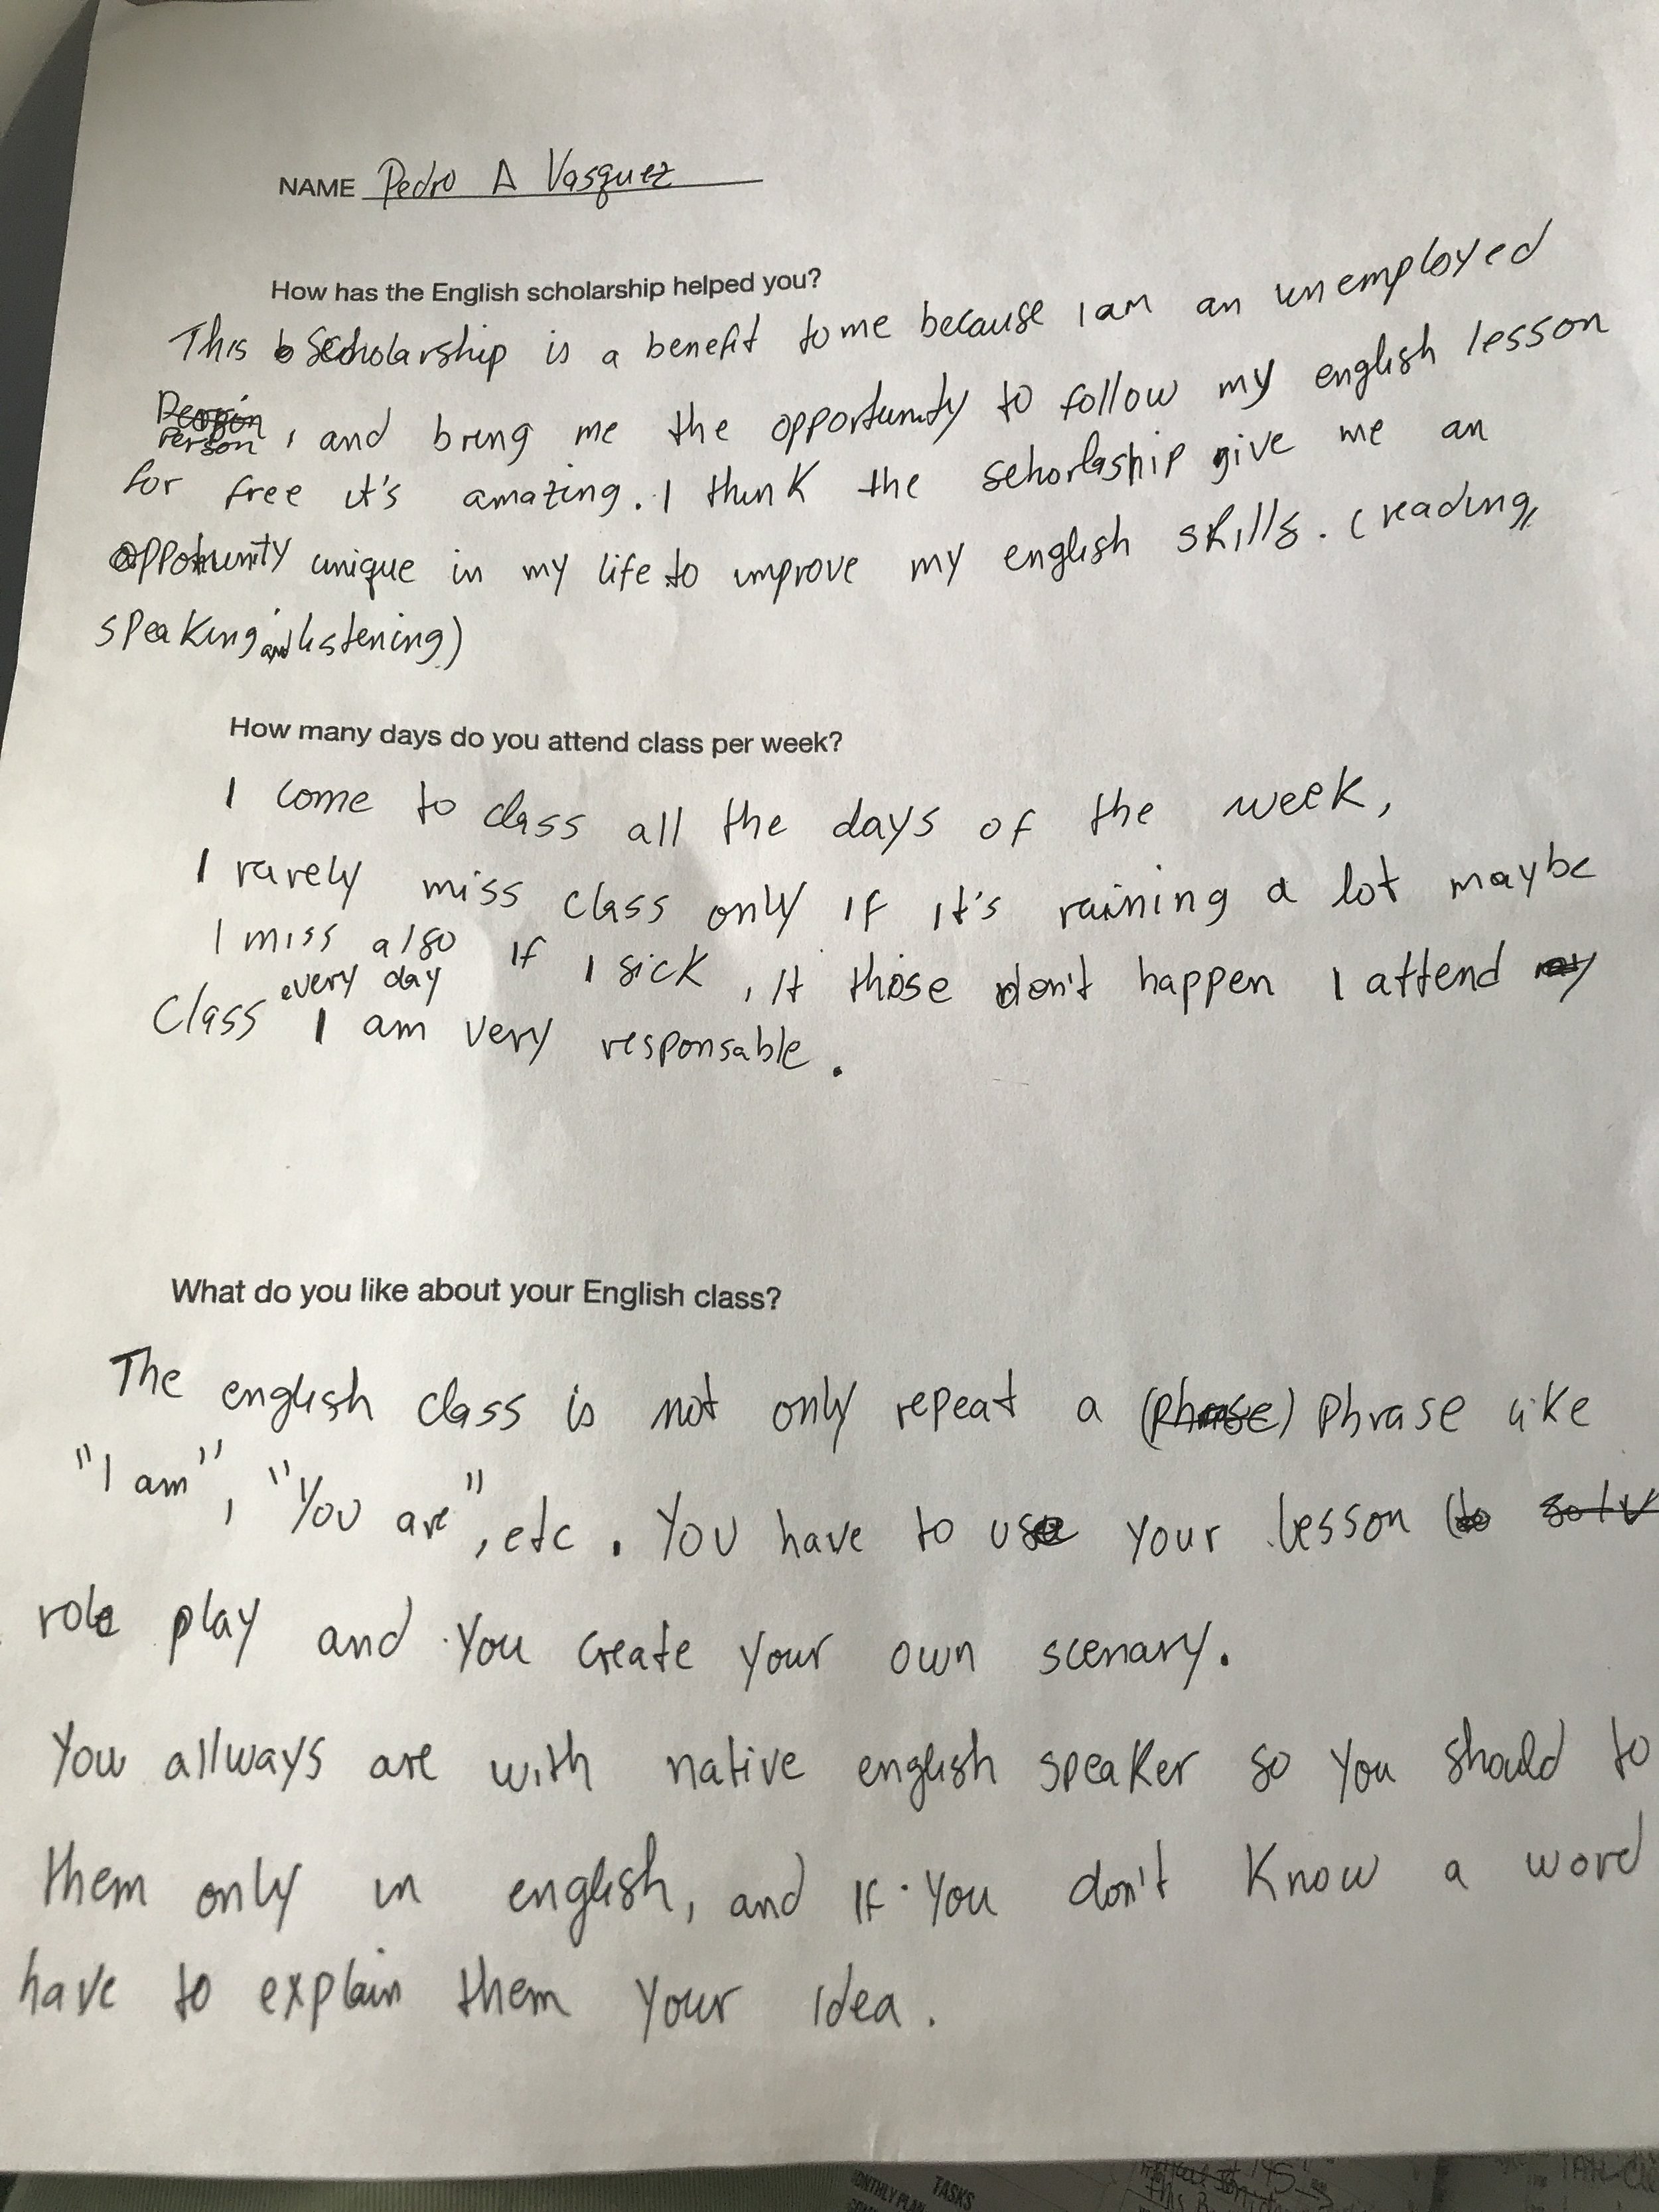 NAME Pedro A Vasquez
How has the English scholarship helped you?
This Scholarship is a benefit to me because I am an unemployed
Person, and bring me the opportunity to follow my english lesson
for free it's amazing. I think the sehorlaship give me an
oppotunity unique in my life to improve my english skills. (reading,
speaking and listening)
How many days do you attend class per week?
I come to class all the days of the week,
I rarely miss class only if it's raining a lot maybe
I miss also if I sick, If those don't happen I attend
every day
Class I am very responsable.
What do you like about your English class?
The english class is not only repeat a (phrase) phrase like
"I am", "You are", etc. You have to use your lesson (to solv
role play and you create your own scenary.
You allways are with native english speaker so you should to
them only in english, and if you don't know a word
have to explain them your idea.
MONTHLY PLAN TASKS